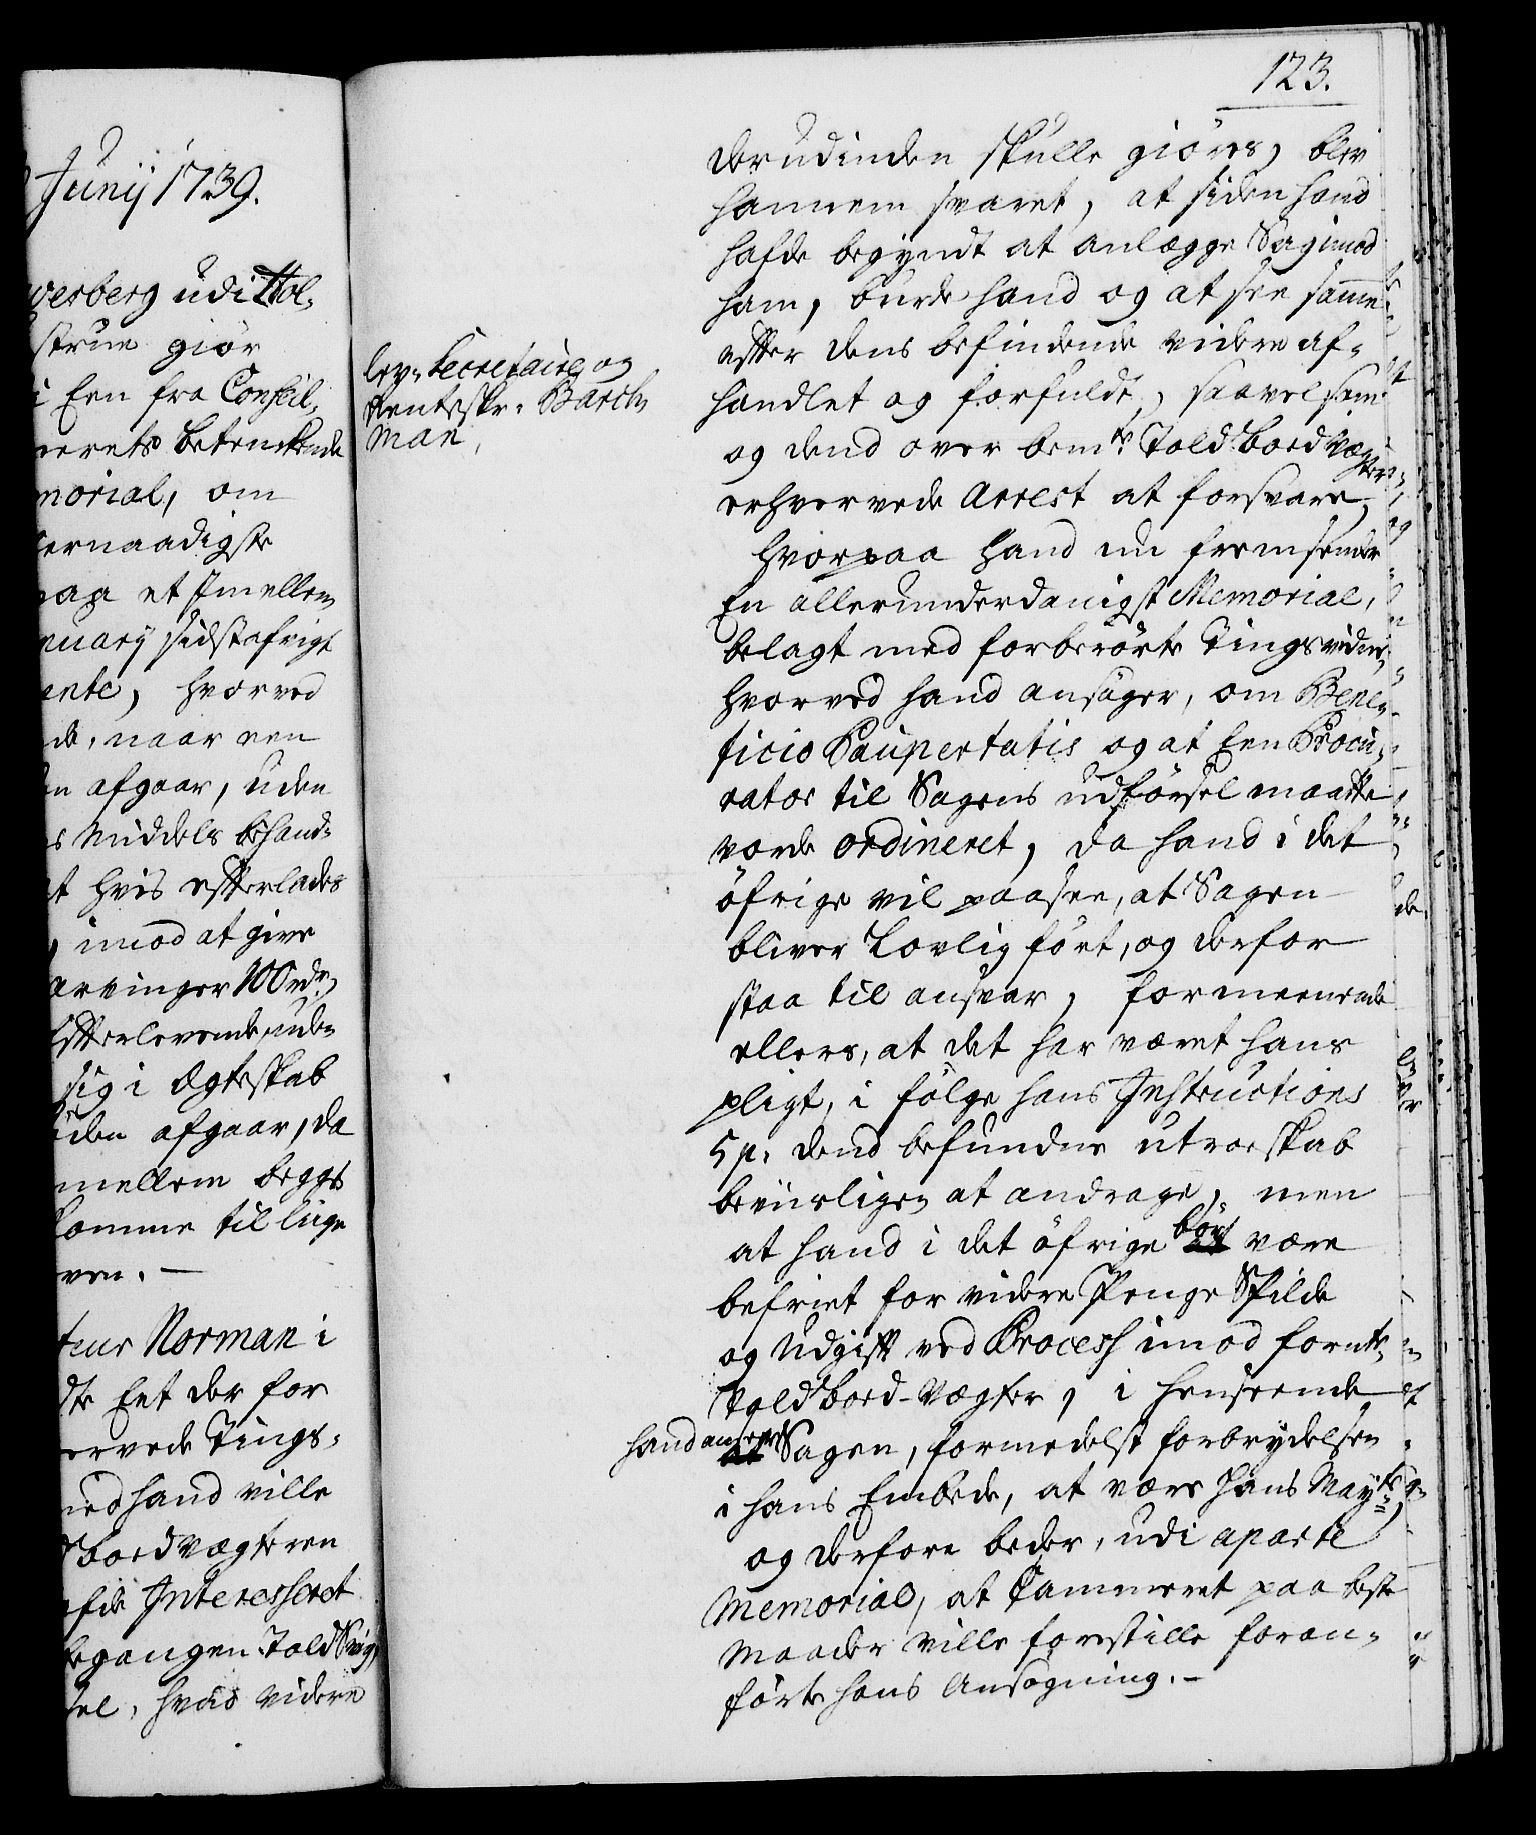 Junij 1739.
verberg udi Hol-
strue giör
i Een fra Conseil,
merets betenkende
morial, om
lernaadigste
paa et Imellem
nuarij sidstafvigt
ente, hvorved
de, naar een
en afgaar, uden
s Middels behand-
t hvis efterlades
, imod at give
arvinger 100 rdr,
Efterlevende, uden
sig i Ægteskab
iden afgaar, da
mellem begge
komme til lige
ven. —
teur Norman i
dte Eet der for
ervede Tings-
med hand ville
dboedvægteren
fde Interesseret
begangen Told Svig,
el, hvad videre
123.
derudinden skulle giöres, blev
hannem svaret, at siden hand
hafde begyndt at anlægge Sag imod
ham, burde hand og at see samme
efter dens befindende videre af-
handlet og forfuldt, saavelsom
og dend over bemte Toldboedvægter
erhvervede Arrest at forsvare,
hvorpaa hand nu fremsender
En allerunderdanigst Memorial,
belagt med forberörte Tingsvidne,
hvorved hand ansöger, om Bene-
ficio Paupertatis og at Een Procu-
rator til Sagens udförsel maatte
vorde ordineret, da hand i det
öfrige vil paasee, at Sagen
bliver Lovlig fört, og derfor
staa til ansvar, formeenende
ellers, at det har været hans
pligt, i fölge hans Instructions
5 p. dend befundne utroeskab
beviisligen at andrage, men
at hand i det öfrige bör være
befriet for videre Penge Spilde
og Udgift ved Process imod fornte
Toldboed-Vægter, i henseende
hand anseer Sagen, formedelst forbrydelsen
i hans Embede, at være Hans Mayts,
og derfore beder, udi aparte
Memorial, at Cammeret paa beste
Maader ville forestille foran-
förte hans Ansögning. —
Secretaire og
Renteskr. Bach
man,